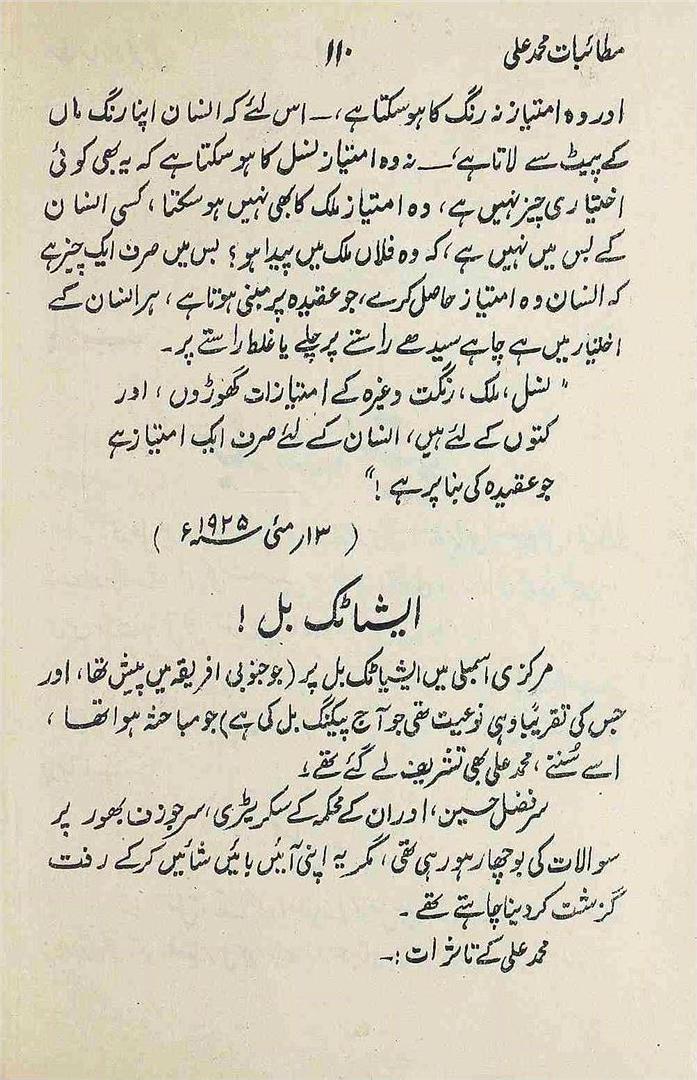 مطائبات محمد علی ۱۱۰
اور وہ امتیاز نہ رنگ کا ہو سکتا ہے، ــ اس لئے کہ انسان اپنا رنگ ماں
کے پیٹ سے لاتا ہے، ــ نہ وہ امتیاز نسل کا ہو سکتا ہے کہ یہ بھی کوئی
اختیاری چیز نہیں ہے، وہ امتیاز ملک کا بھی نہیں ہو سکتا، کسی انسان
کے بس میں نہیں ہے، کہ وہ فلاں ملک میں پیدا ہو؟ بس میں صرف ایک چیز ہے
کہ انسان وہ امتیاز حاصل کرے، جو عقیدہ پر مبنی ہوتا ہے، ہر انسان کے
اختیار میں ہے چاہے سیدھے راستے پر چلے یا غلط راستے پر۔
"نسل، ملک، رنگت وغیرہ کے امتیازات گھوڑوں، اور
کتوں کے لئے ہیں، انسان کے لئے صرف ایک امتیاز ہے
جو عقیدہ کی بنا پر ہے!"
(۱۳ر مئی ۱۹۲۵ء)
ایشاٹک بل!
مرکزی اسمبلی میں ایشیاٹک بل پر (جو جنوبی افریقہ میں پیش تھا، اور
جس کی تقریبًا وہی نوعیت تھی جو آج پیکنگ بل کی ہے) جو مباحثہ ہوا تھا،
اسے سُننے، محمد علی بھی تشریف لے گئے تھے۔
سر فضل حسین، اور ان کے محکمہ کے سکریٹری، سر جوزف بھور پر
سوالات کی بوچھار ہو رہی تھی، مگر یہ اپنی آئیں بائیں شائیں کر کے رفت
گزشت کر دینا چاہتے تھے۔
محمد علی کے تاثرات :۔